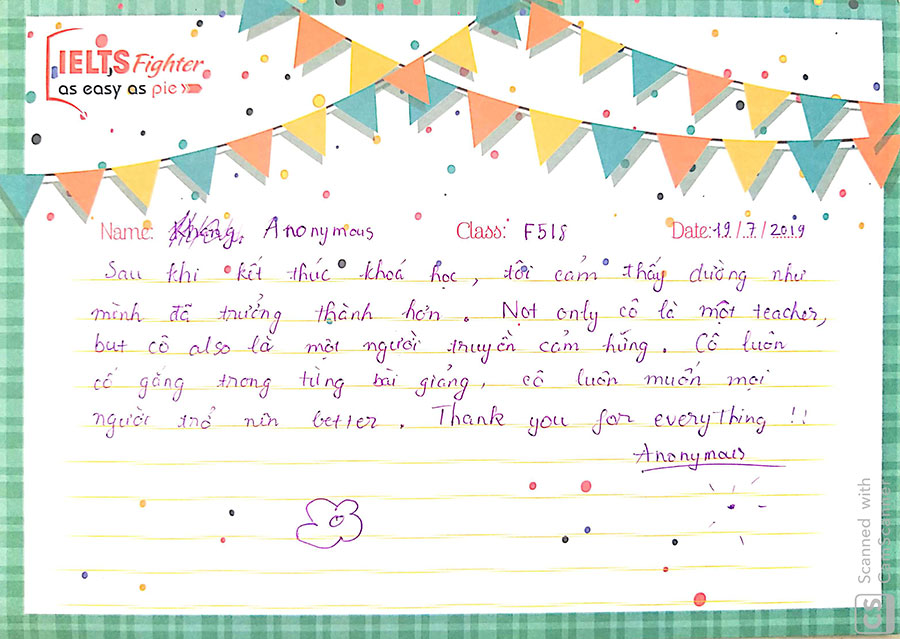 IELTS Fighter
as easy as pie
Name: Anonymous Class: F518 Date: 19/7/2019
Sau khi kết thúc khoá học, tôi cảm thấy dường như
mình đã trưởng thành hơn. Not only cô là một teacher,
but cô also là một người truyền cảm hứng. Cô luôn
cố gắng trong từng bài giảng, cô luôn muốn mọi
người trở nên better. Thank you for everything !!
Anonymous
CS Scanned with
CamScanner